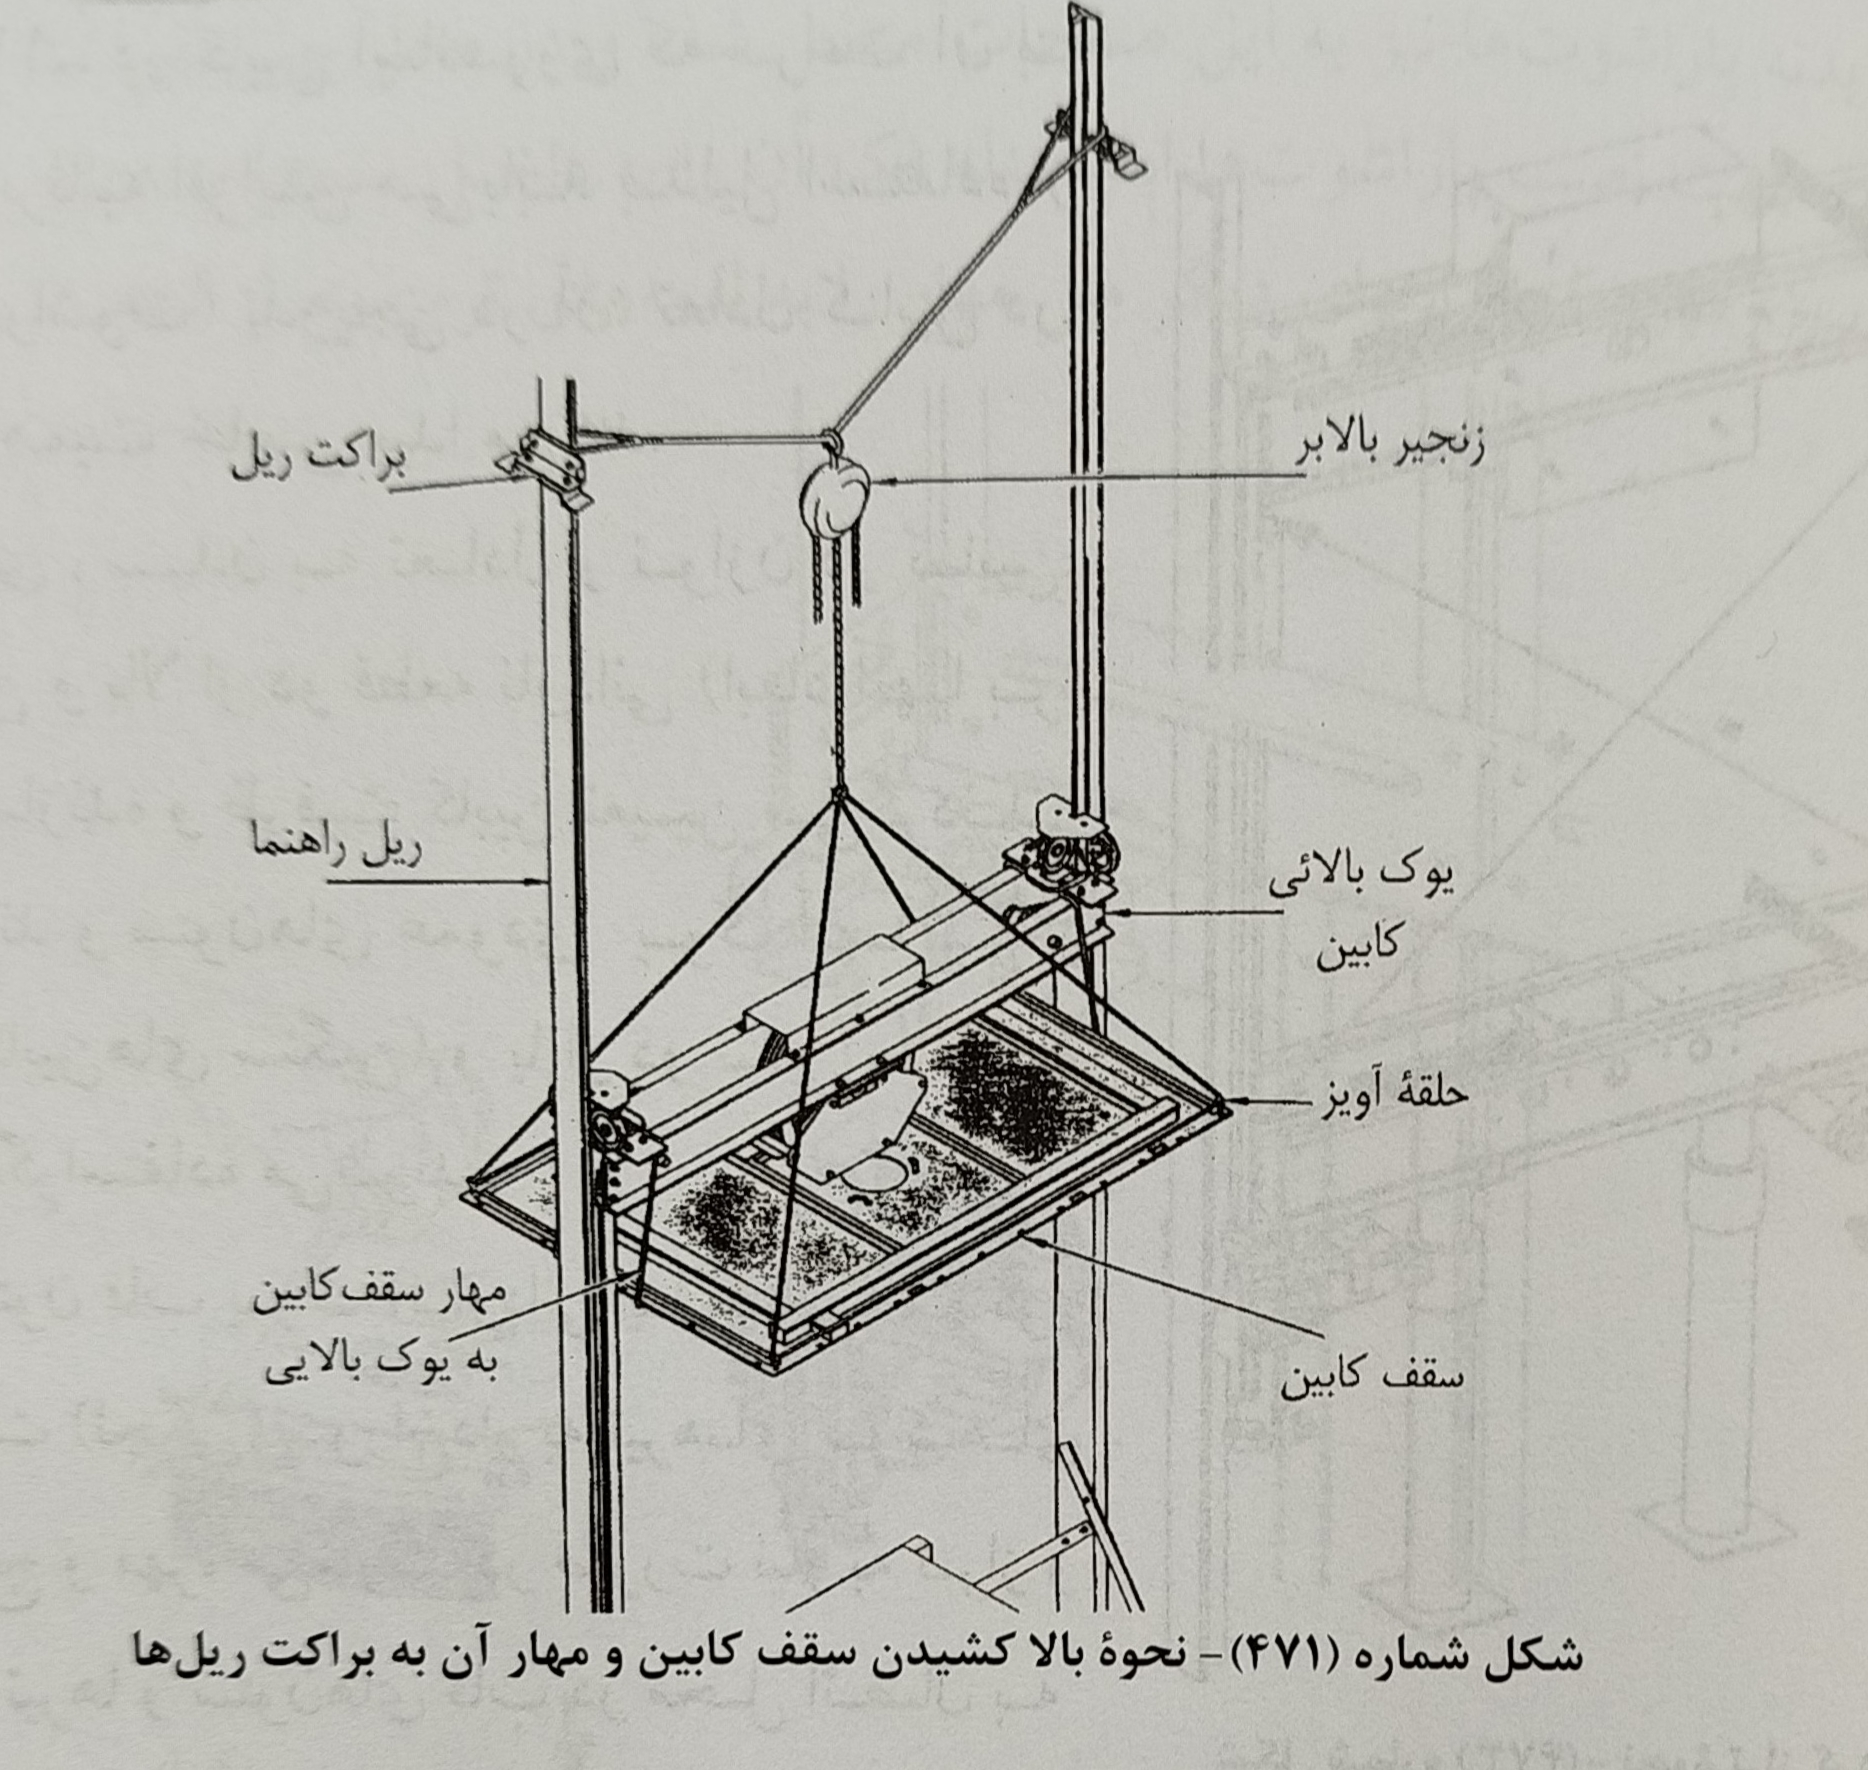 زنجیر بالابر
براکت ریل
ریل راهنما
یوک بالائی
کابین
حلقهٔ آویز
مهار سقف کابین
به یوک بالایی
سقف کابین
شکل شماره (۴۷۱)- نحوهٔ بالا کشیدن سقف کابین و مهار آن به براکت ریل‌ها